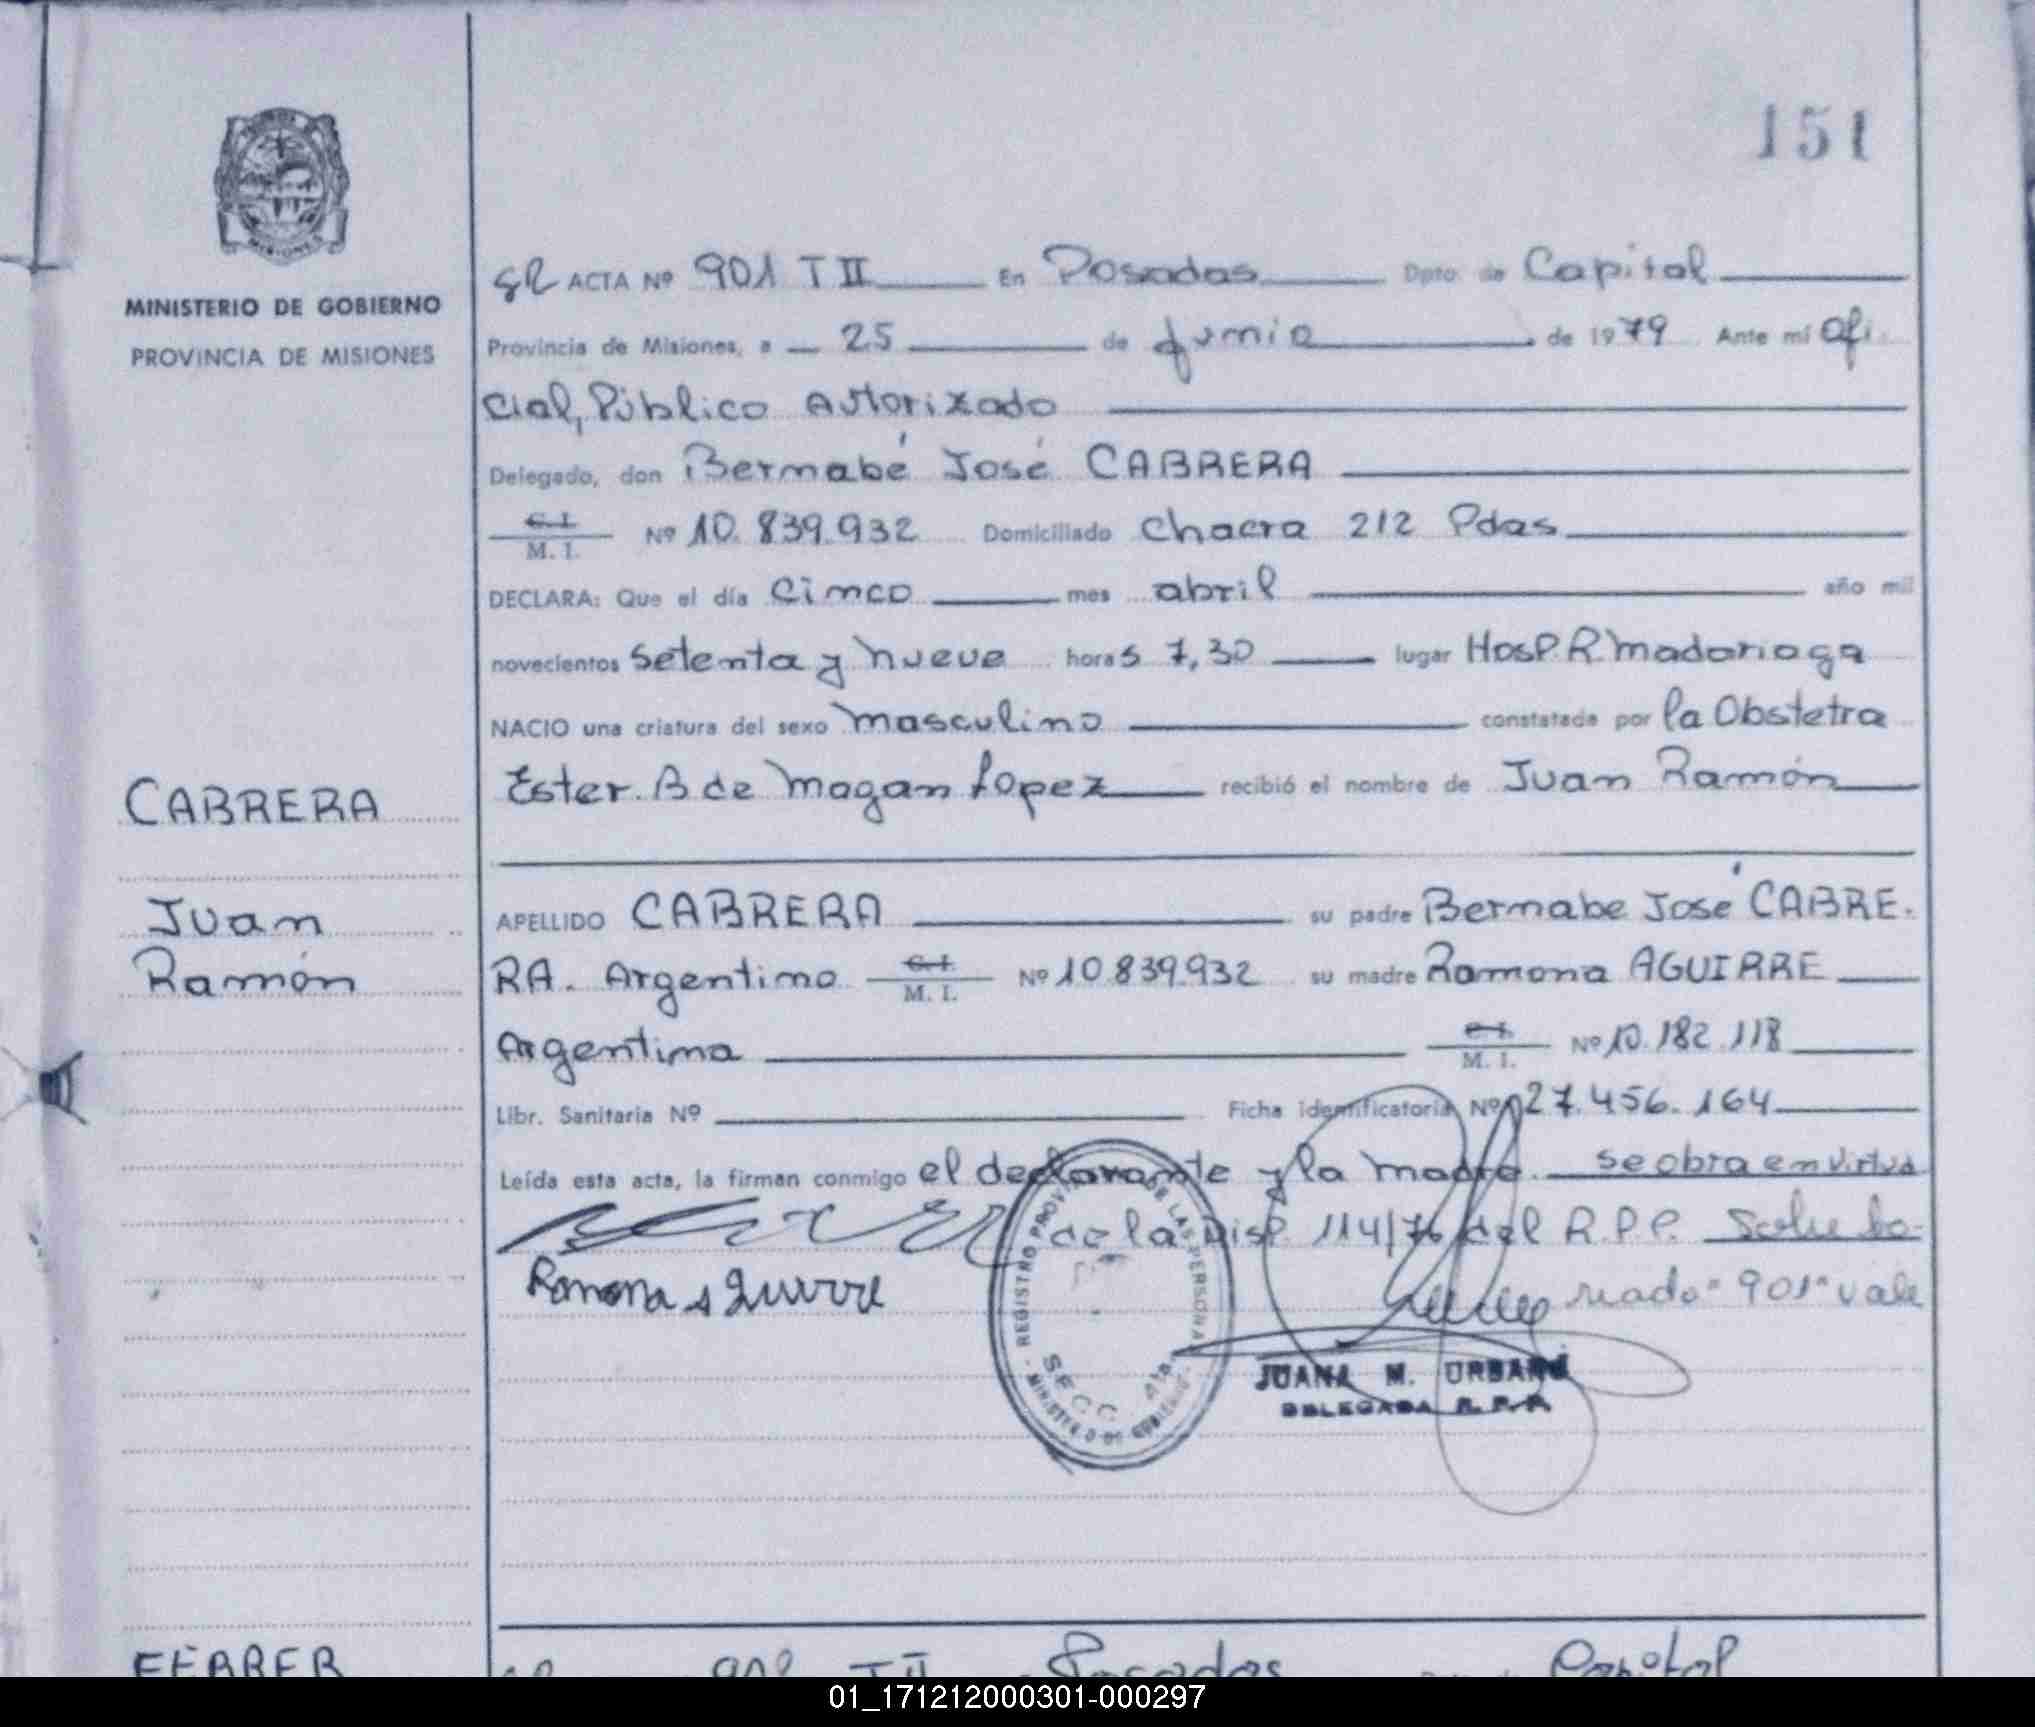 151
MINISTERIO DE GOBIERNO
PROVINCIA DE MISIONES
ACTA Nº 901 T II En Posadas Dpto. de Capital
Provincia de Misiones, a 25 de junio de 1979 Ante mí Ofi
cial, Público Autorizado
Delegado, don Bernabé José CABRERA
C.I. M. I. Nº 10.839.932 Domiciliado Chacra 212 Pdas
DECLARA: Que el día Cinco mes abril año mil
novecientos Setenta y nueve horas 7,30 lugar Hosp. R. Madariaga
NACIO una criatura del sexo masculino constatada por la Obstetra
Ester. B de Magan Lopez recibió el nombre de Juan Ramón
CABRERA
Juan
Ramón
APELLIDO CABRERA su padre Bernabe José CABRE.
RA. Argentino C.I. M. I. Nº 10.839.932 su madre Ramona AGUIRRE
Argentina C.I. M. I. Nº 10.182.118
Libr. Sanitaria Nº Ficha identificatoria Nº 27.456.164
Leída esta acta, la firman conmigo el declarante y la madre. se obra en virtud
de la Disp. 114/76 del R.P.P. Sobre bo-
rrado "901" vale
Ramona Aguirre
REGISTRO PROVINCIAL DE LAS PERSONAS
MINISTERIO DE GOBIERNO
SECC. 4ta
JUANA M. URBANO
DELEGADA R.P.P.
FERRER
T II Posadas Capital
01_171212000301-000297